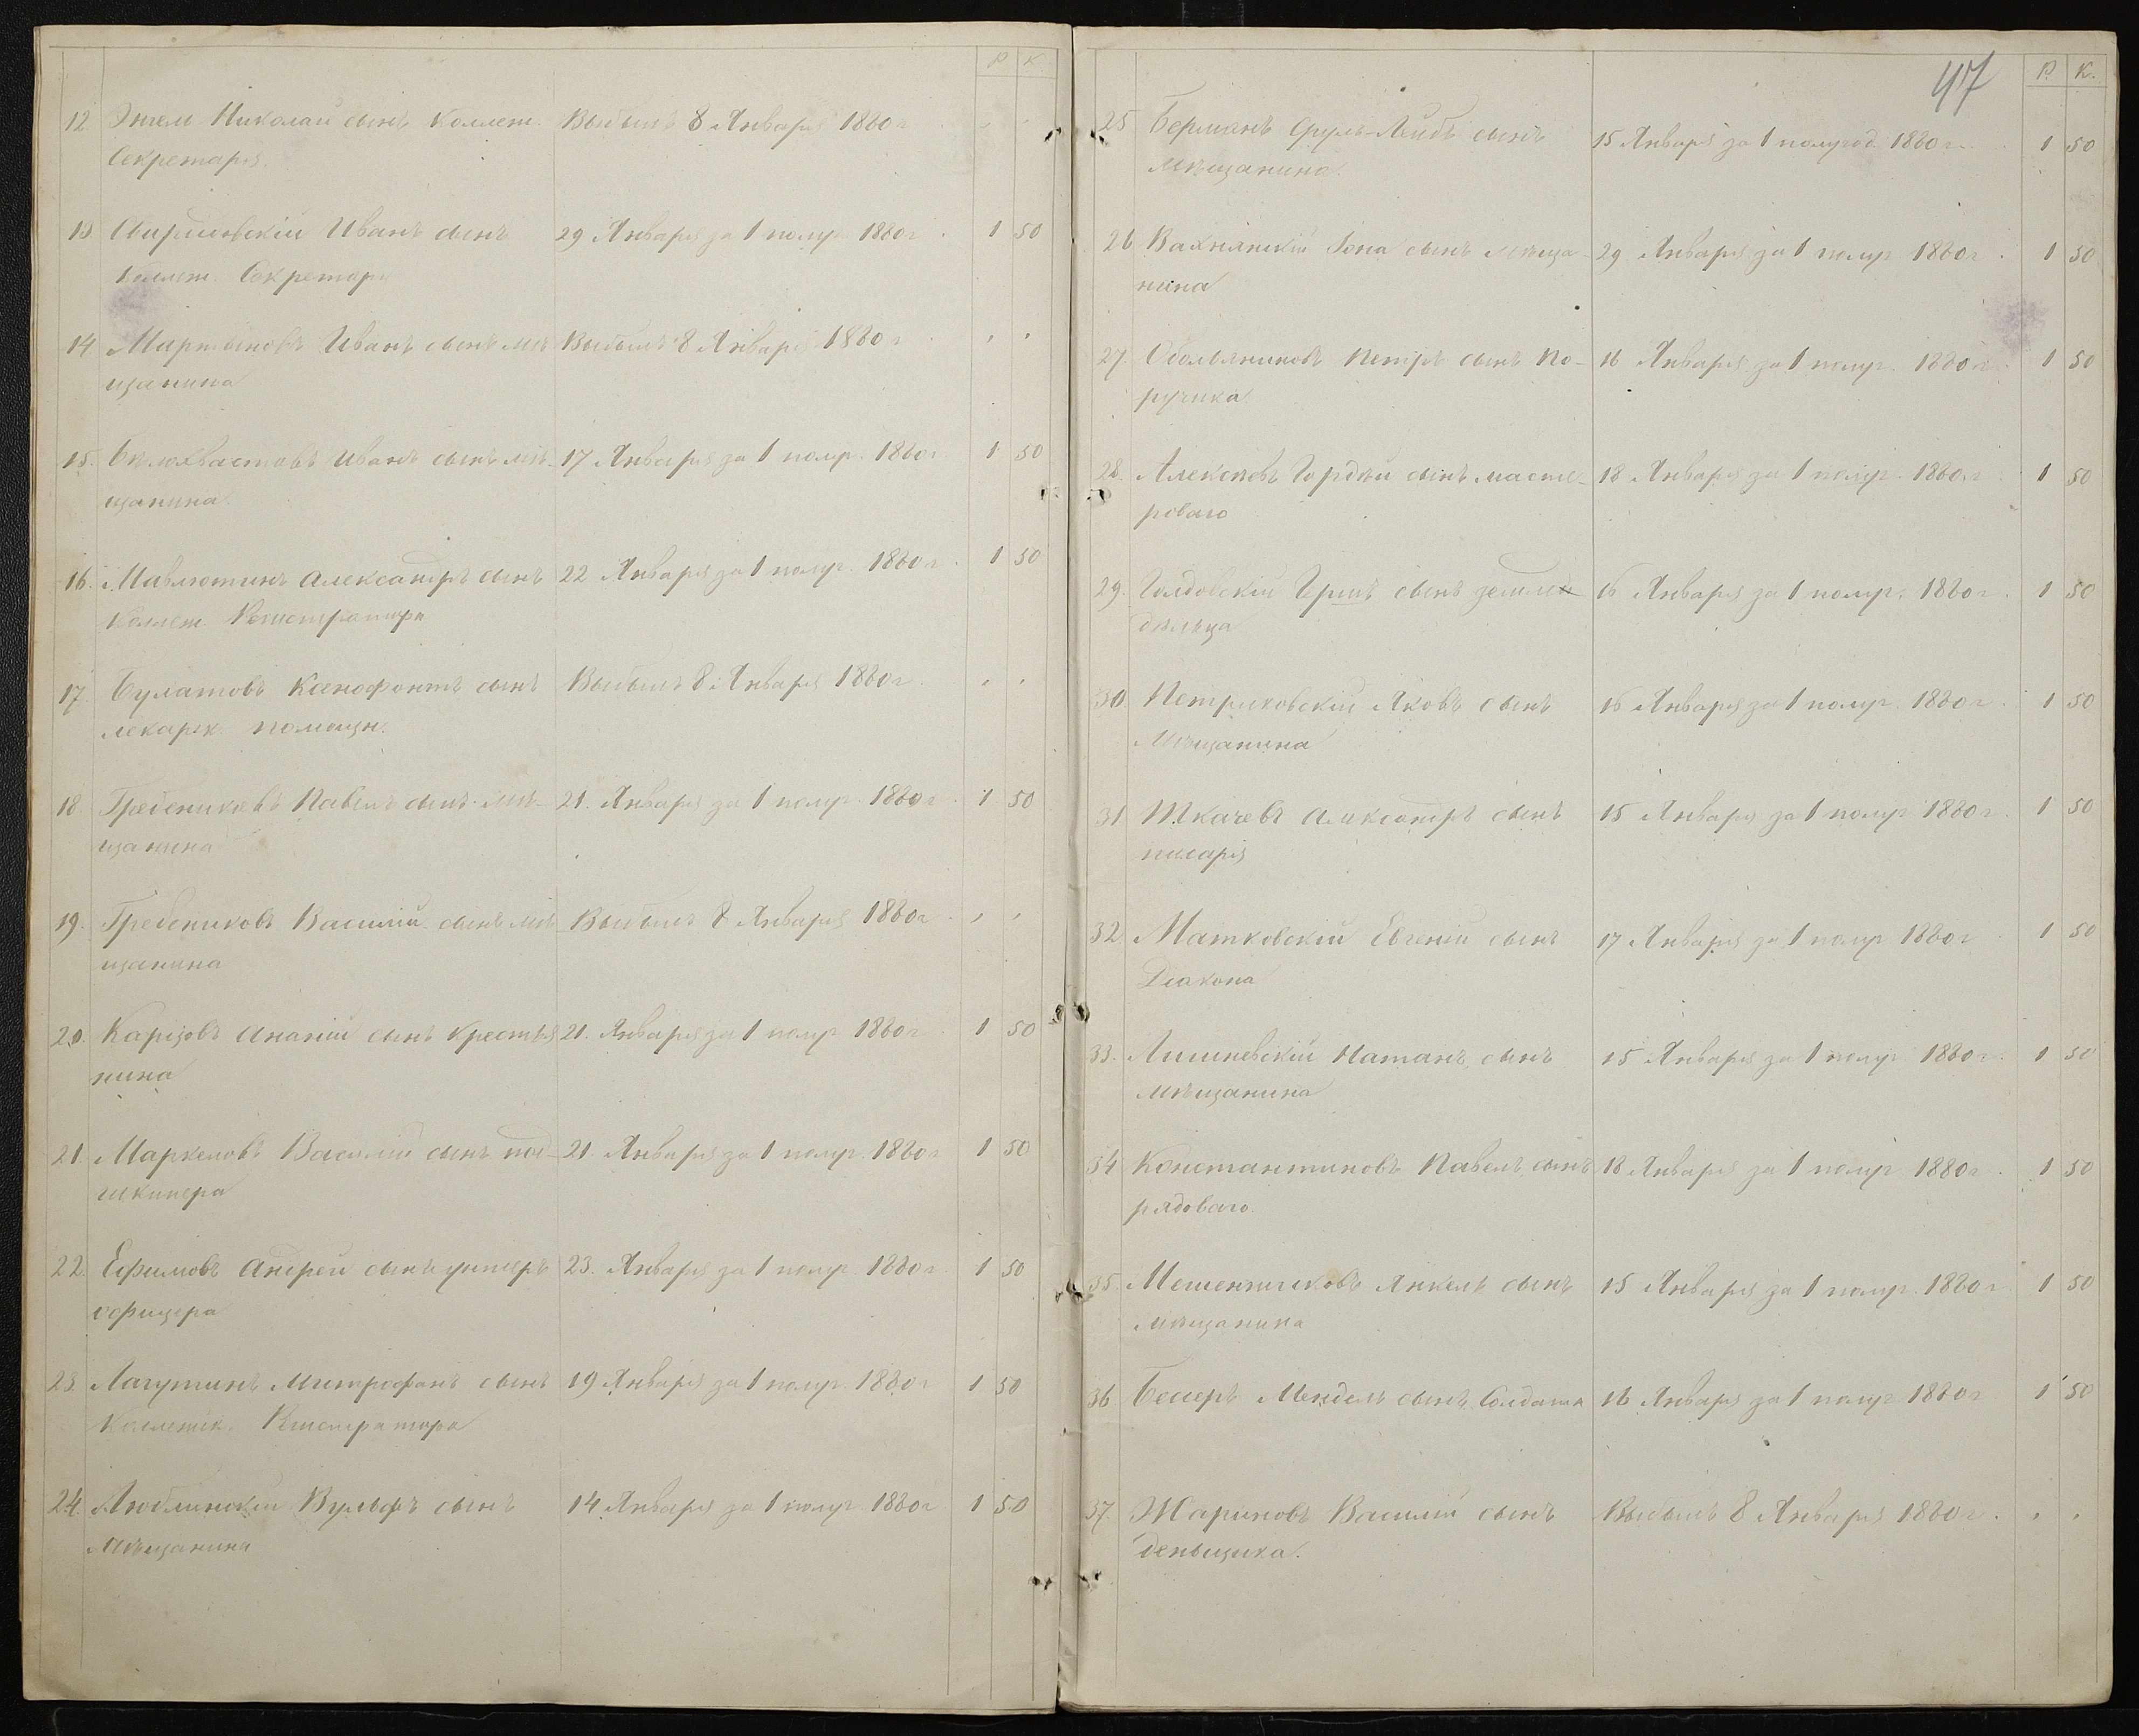 Р К
12 Николай сынъ Коллеж. Выбылъ 8 Января 1880 г.
Секретаря.
13. Иванъ сынъ 29 Января за 1 полуг. 1880 г. 1 50
Коллеж. Секретаря
14 Мартыновъ Иванъ сынъ мѣ- Выбылъ 8 Января 1880 г.
щанина
15. Бѣлохвастовъ Иванъ сынъ мѣ- 17 Января за 1 полуг. 1880 г. 1 50
щанина.
16. Мавлютинъ Александръ сынъ 22 Января за 1 полуг. 1880 г. 1 50
Коллеж. Регистратора
17 Булатовъ Ксенофонтъ сынъ Выбылъ 8 Января 1880 г.
лекарск. помощн.
18. Гребениковъ Павелъ сынъ мѣ- 21. Января за 1 полуг. 1880 г. 1 50
щанина
19. Гребениковъ Василій сынъ мѣ- Выбылъ 8 Января 1880 г.
щанина
20. Карповъ Ананій сынъ крестья- 21. Января за 1 полуг. 1880 г. 1 50
нина
21. Маркеловъ Василій сынъ под- 21. Января за 1 полуг. 1880 г. 1 50
шкипера
22. Ефимовъ Андрей сынъ унтеръ 23. Января за 1 полуг. 1880 г. 1 50
офицера
23. Лагутинъ Митрофанъ сынъ 19 Января за 1 полуг. 1880 г. 1 50
Коллежск. Регистратора
24. Люблинскій Вульфъ сынъ 14 Января за 1 полуг. 1880 г. 1 50
Мѣщанина
47
Р. К.
25 Берманъ Сруль-Лейбъ сынъ 15 Января за 1 полугод. 1880 г. 1 50
мѣщанина.
26 Вахнянскій Іона сынъ мѣща- 29 Января за 1 полуг. 1880 г. 1 50
нина
27. Обольяниновъ Петръ сынъ По- 16 Января за 1 полуг. 1880 г. 1 50
ручика.
28. Алексѣевъ Гордѣй сынъ масте- 18 Января за 1 полуг. 1880 г. 1 50
роваго
29. Голдовскій Гершъ сынъ земле- 16 Января за 1 полуг. 1880 г. 1 50
дѣльца
30 Петриковскій Яковъ сынъ 16 Января за 1 полуг. 1880 г. 1 50
Мѣщанина
31 Ткачевъ Александръ сынъ 15 Января за 1 полуг. 1880 г. 1 50
писаря
32 Матковскій Евгеній сынъ 17 Января за 1 полуг. 1880 г. 1 50
Діакона
33. Лишневскій Натанъ сынъ 15 Января за 1 полуг. 1880 г. 1 50
мѣщанина
34 Константиновъ Павелъ сынъ 18 Января за 1 полуг. 1880 г. 1 50
рядоваго.
35. Янкель сынъ 15 Января за 1 полуг. 1880 г. 1 50
мѣщанина
36 Бешеръ Мендель сынъ Солдата 16 Января за 1 полуг. 1880 г. 1 50
37. Жариновъ Василій сынъ Выбылъ 8 Января 1880 г.
деньщика.